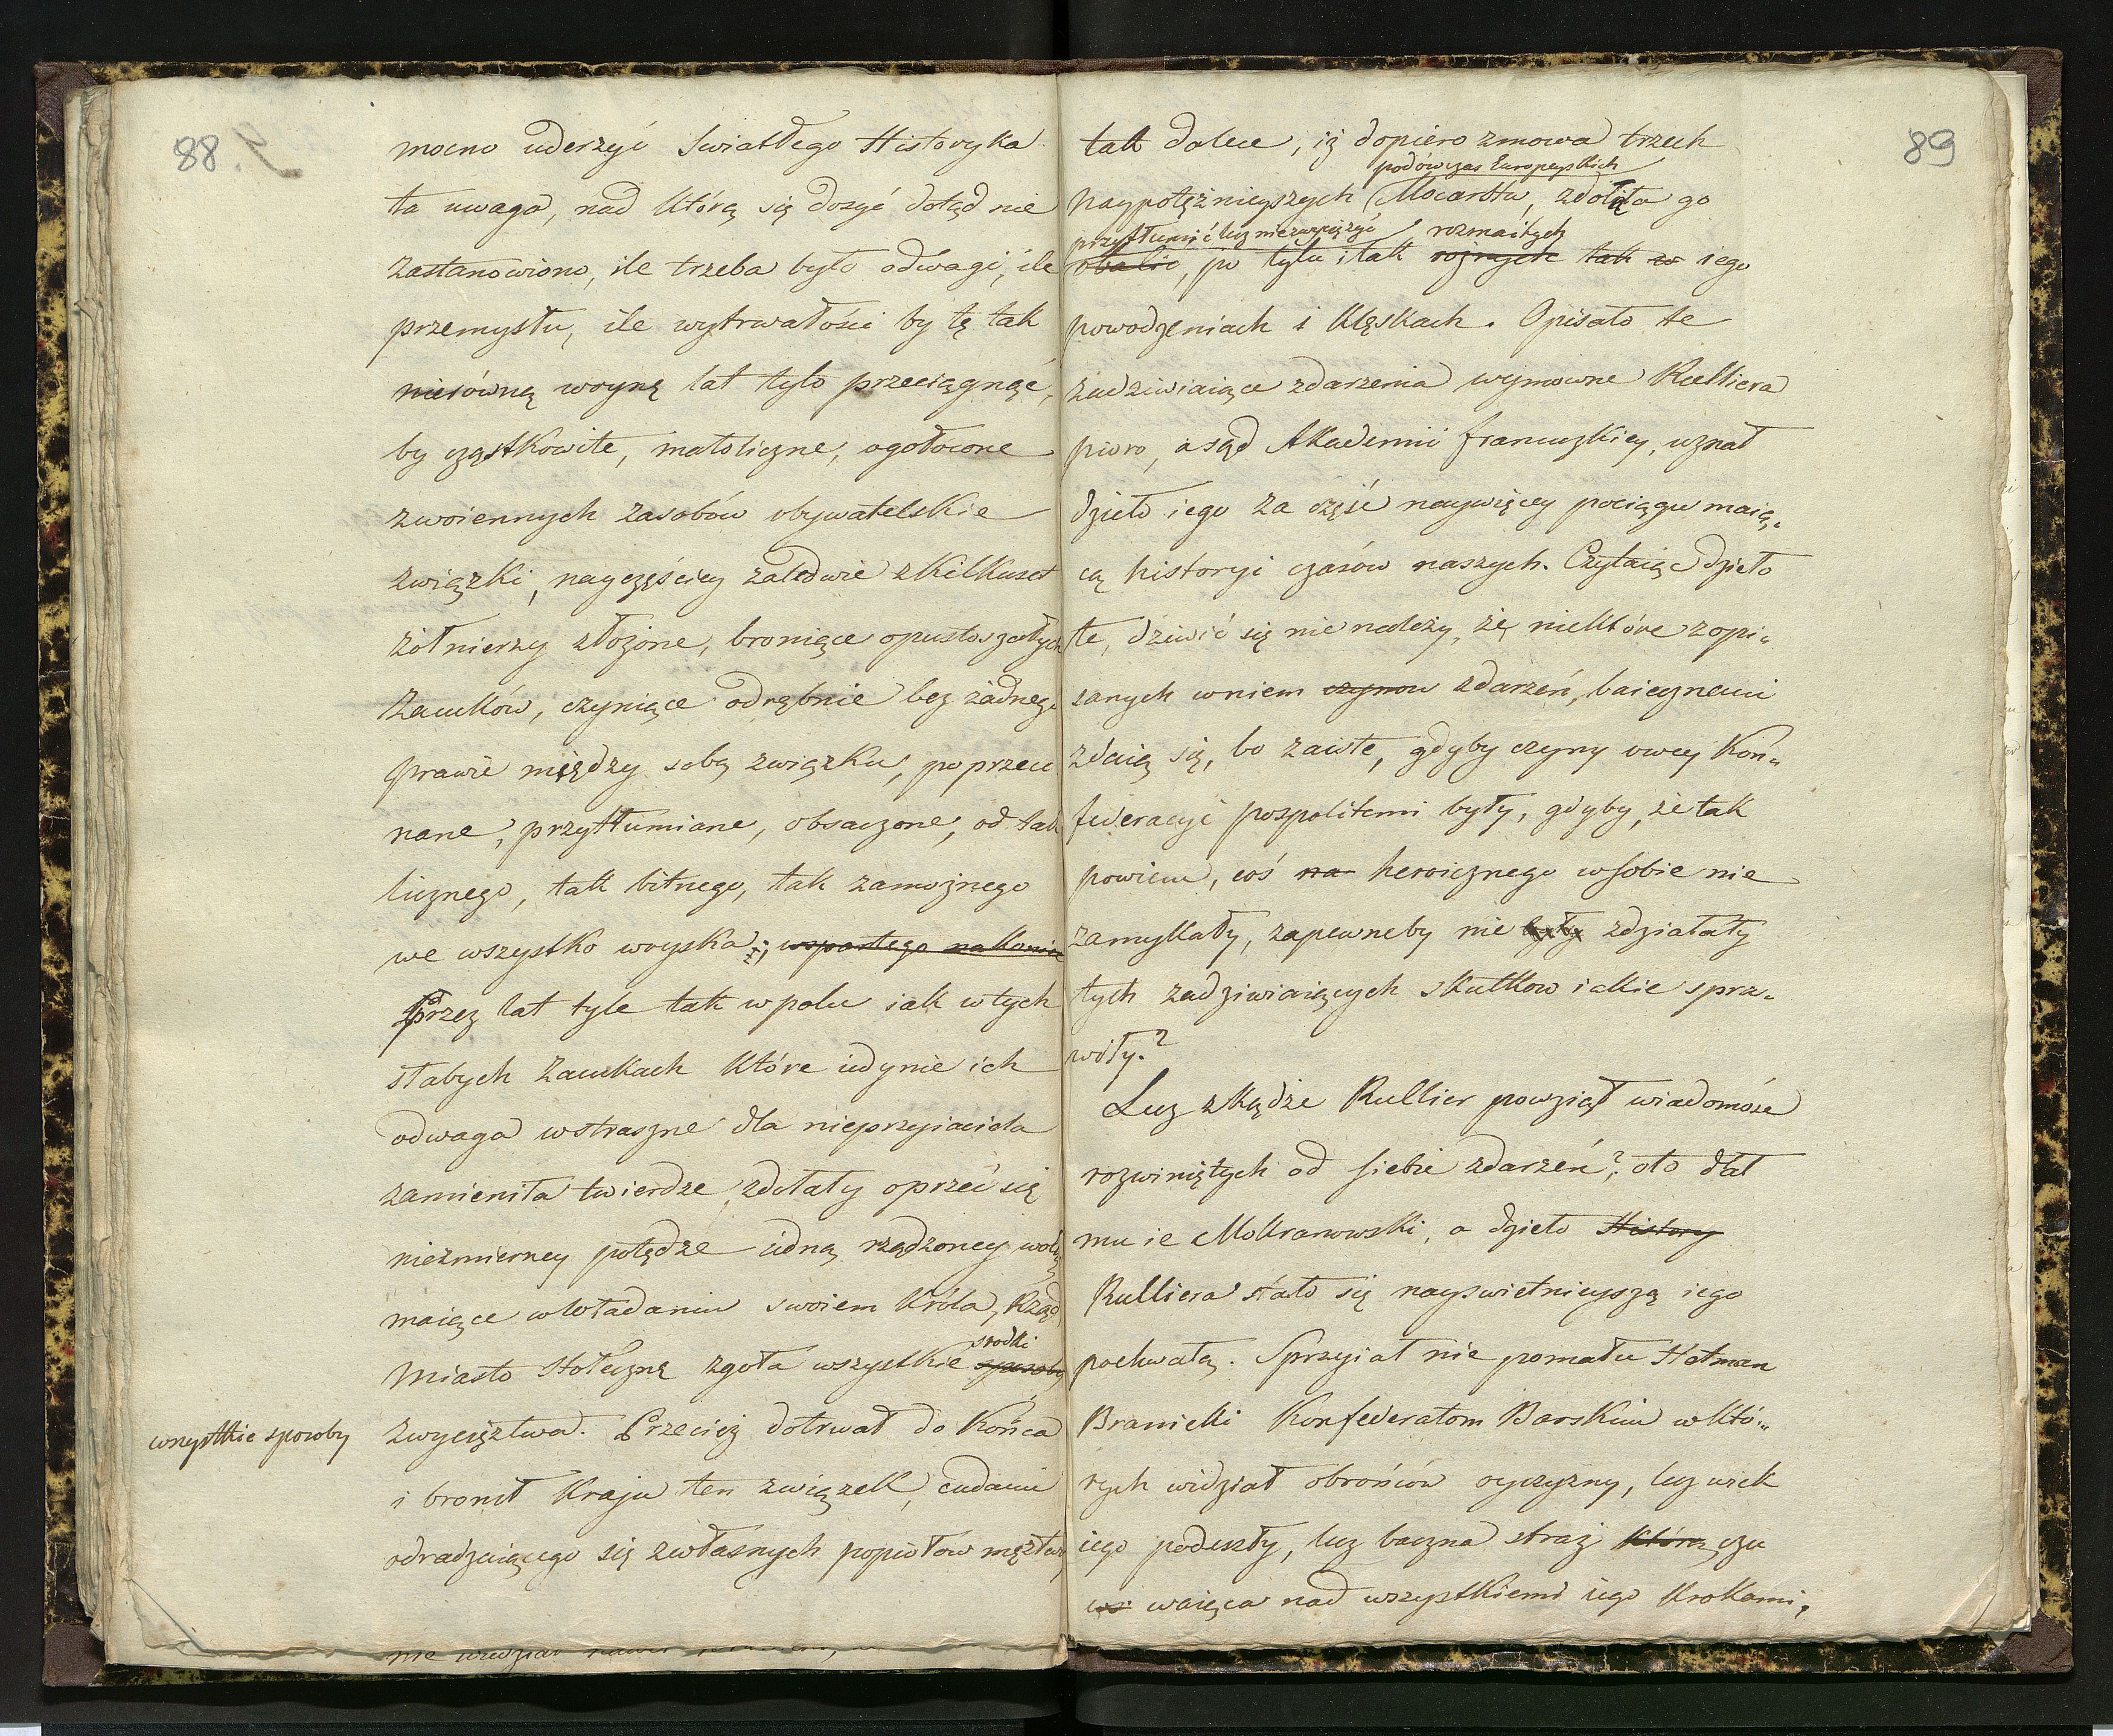 88.
mocno uderzyć Swiatłego Historyka
ta uwaga, nad którą się dosyć dotąd nie
zastanowiono, ile trzeba było odwagi, ile
przemysłu, ile wytrwałości by tę tak
nierówną woynę lat tylo przeciągnąć,
by cząstkowite, małoliczne, ogołocone
zwoiennych zasobów obywatelskie
związki, nayczęściey zaledwie z kilkuset
żołnierzy złożone, broniące opustoszałych
Zamków, czyniące odrębnie bez żadnego
prawie między sobą związku, poprzeci
nane, przytłumiane, obsaczone, od tak
licznego, tak bitnego, tak zamożnego
we wszystko woyska; wspartego nakoniec
Przez lat tyle tak w polu iak w tych
słabych Zamkach które iedynie ich
odwaga wstraszne dla nieprzyiaciela
zamieniła twierdze, zdołały oprzeć się
niezmierney potędze iedną rządzoney wolą
maiące w władaniu swoiem Króla, Rząd
srodki
Miasto Stołeczne zgoła wszystkie sposoby
wszystkie sposoby
zwycięztwa. Przecięż dotrwał do Końca
i bronił Kraju ten związek, cudami
odradzaiącego się z własnych popiołow męztwa
89
tak dalece, iż dopiero zmowa trzech
podówczas Europeyskich
Naypotężnieyszych Mocarstw, zdołała go
przytłumić lecz niezwyciężyć rozmaitych
obalić, po tylu i tak rożnych tak w iego
powodzeniach i klęskach. Opisało te
zadziwiaiące zdarzenia wymowne Rulliera
pioro, a sąd Akademii francuzkiey, uznał
dzieło iego za część naywięcey pociągu maią„
cą historyi czasów naszych. Czytaiąc dzieło
te, dziwić się nie należy, że niektóre z opi„
sanych wniem czynow zdarzeń, baiecznemi
zdaią się, bo zaiste, gdyby czyny owey Kon„
federacyi pospolitemi były, gdyby, że tak
powiem, coś na heroicznego w sobie nie
zamykały, zapewneby nie były zdziałały
tych zadziwiaiących skutkow iakie spra„
wiły.?
Lecz zkądże Rullier powziął wiadomóść
rozwiniętych od siebie zdarzeń? oto dał
mu ie Mokranowski, a dzieło History
Rulliera stało się nayswietnieyszą iego
pochwałą. Sprzyiał nie pomału Hetman
Branicki Konfederatom Barskim w któ„
rych widział obrońców oyczyzny, lecz wiek
iego podeszły, lecz baczna straż która czu
ws waiąca nad wszystkiemi iego krokami,